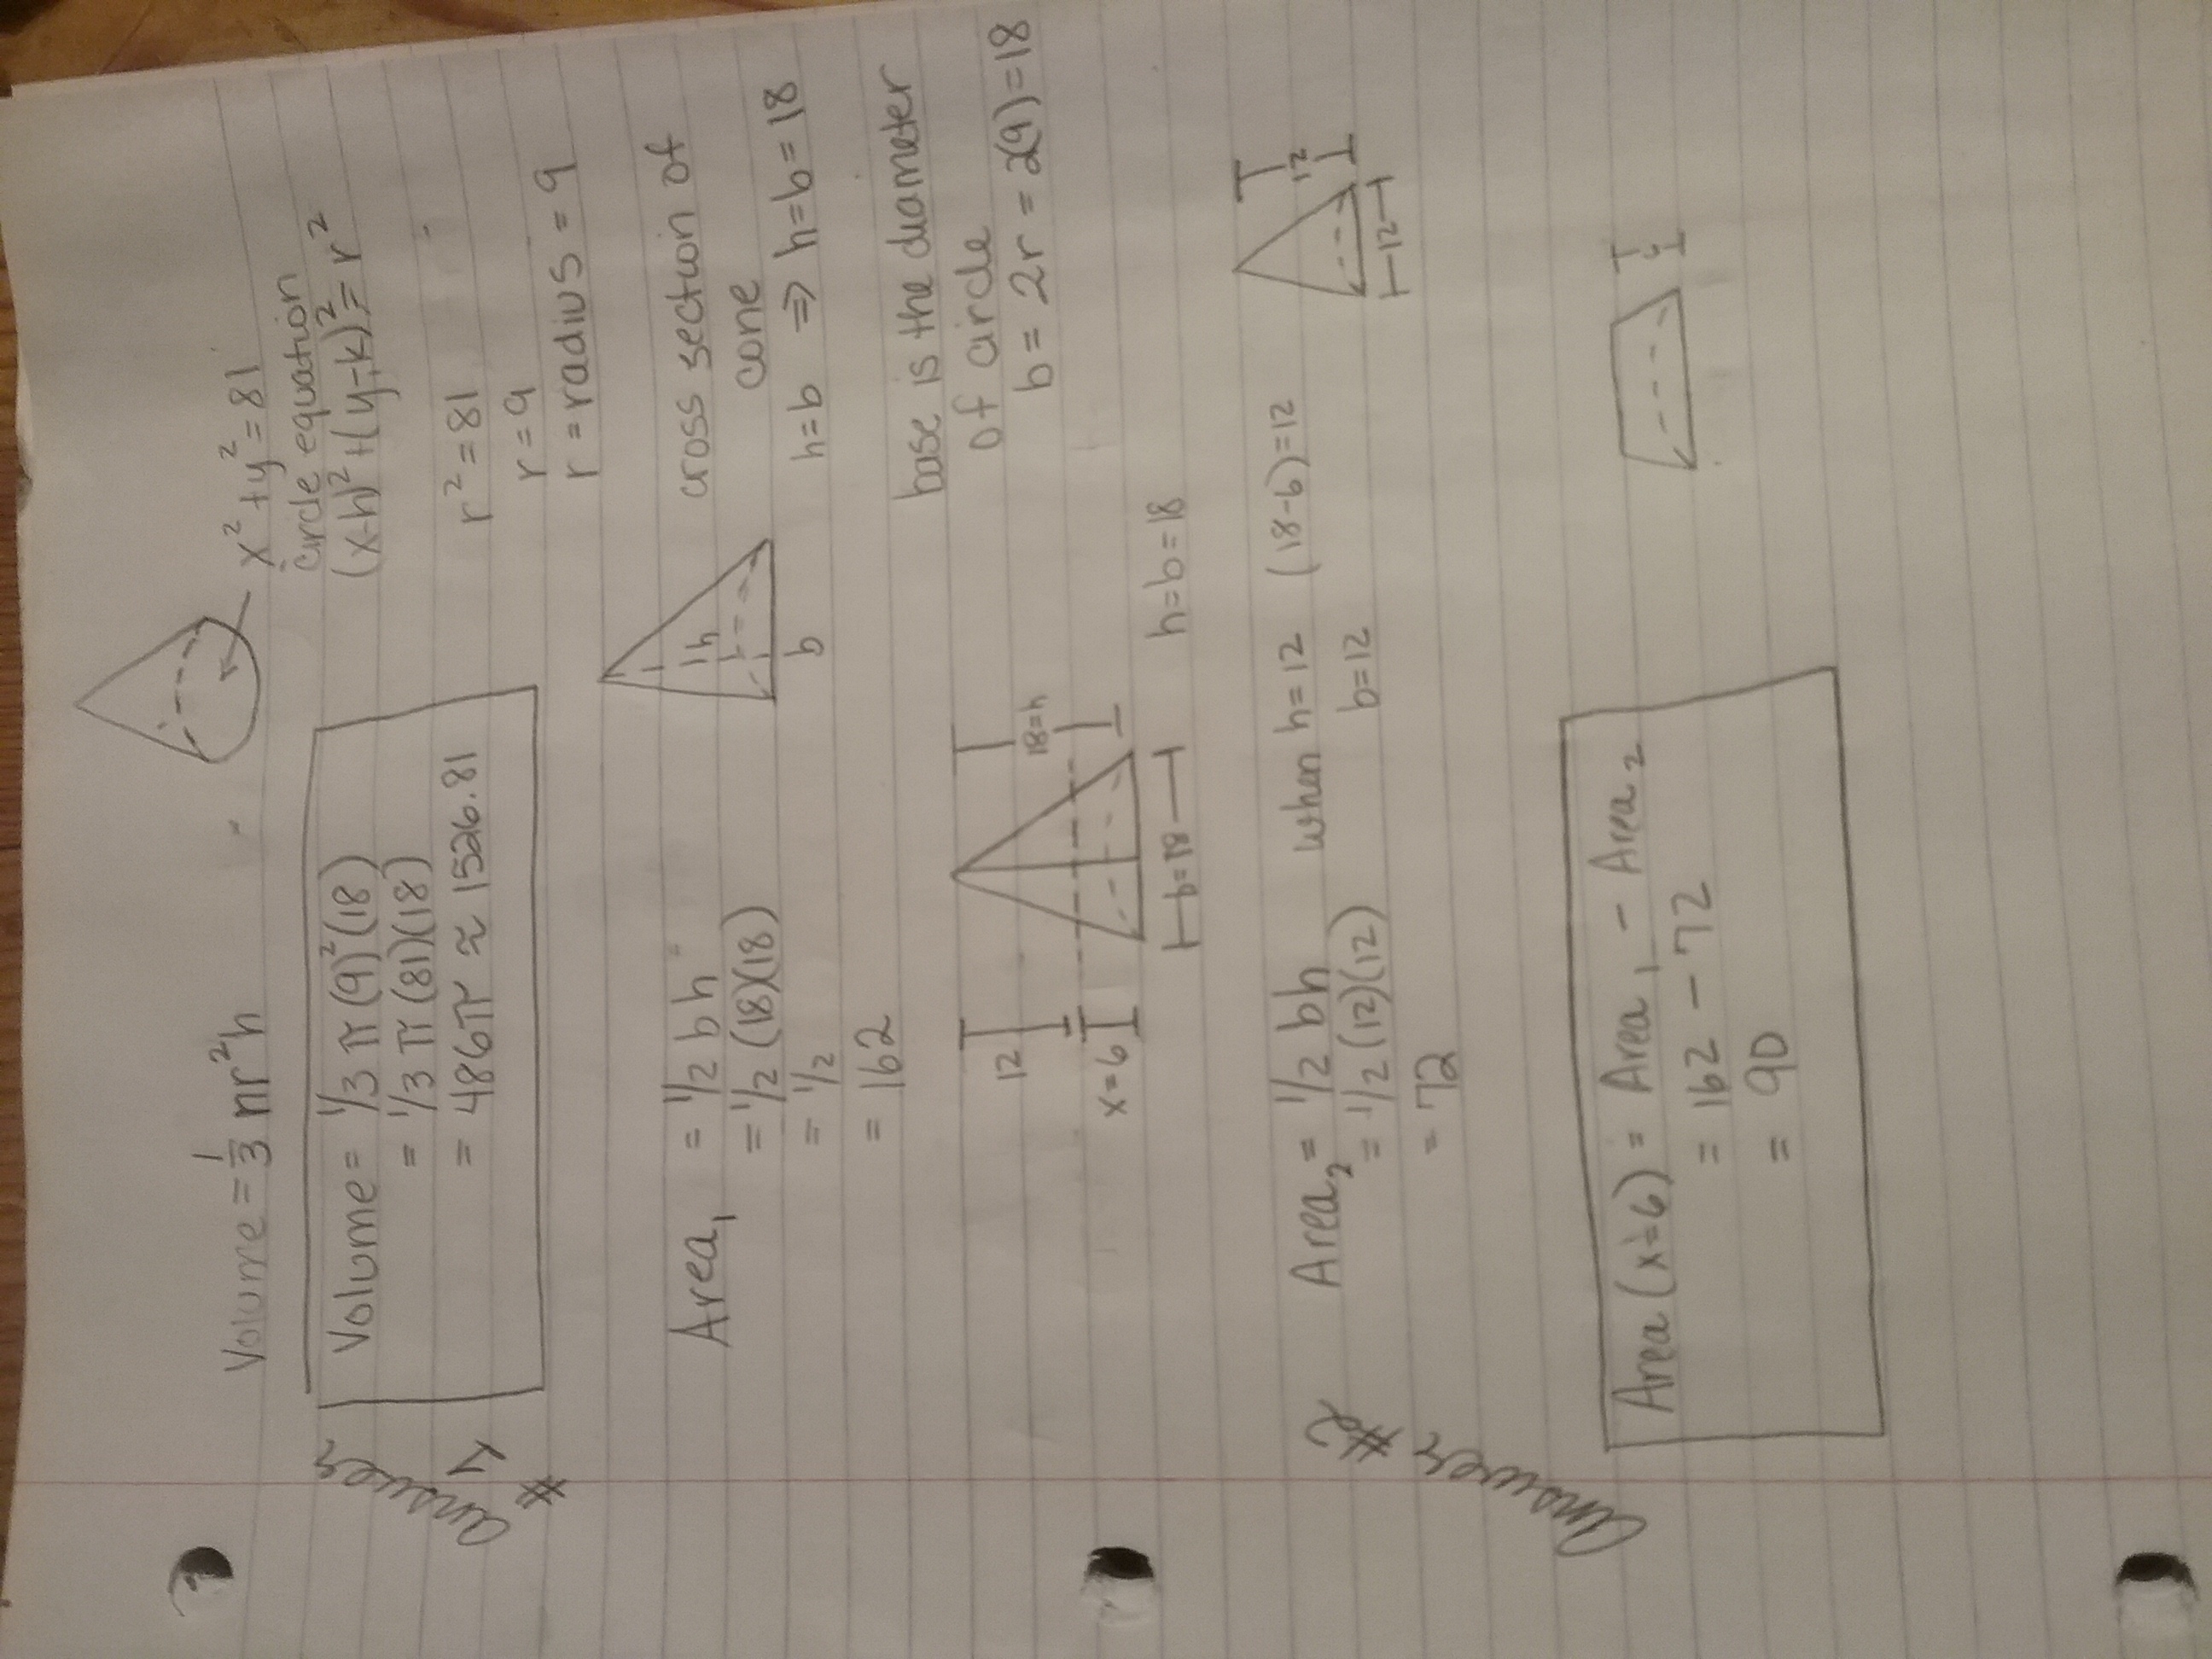 Volume = 1/3 πr²h
x² + y² = 81
circle equation
(x-h)² + (y-k)² = r²
r² = 81
r = 9
r = radius = 9
Volume = 1/3 π (9)² (18)
= 1/3 π (81)(18)
= 486π ≈ 1526.81
answer
#1
Area₁ = 1/2 b h
= 1/2 (18)(18)
= 1/2
= 162
h
b
cross section of
cone
h = b ⇒ h = b = 18
base is the diameter
of circle
b = 2r = 2(9) = 18
12
x = 6
18 = h
b = 18
h = b = 18
Area₂ = 1/2 bh
= 1/2 (12)(12)
= 72
when h = 12 (18-6) = 12
b = 12
12
12
answer #2
Area (x=6) = Area₁ - Area₂
= 162 - 72
= 90